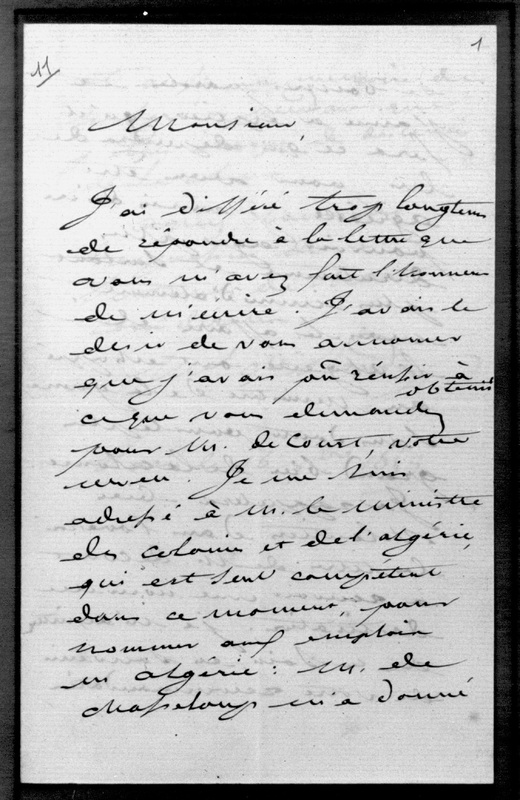 11
1
Monsieur,
J'ai différé trop longtems
de répondre à la lettre que
vous m'avez fait l'honneur
de m'écrire. J'avais le
desir de vous annoncer
que j'avais pû réussir à
obtenir
ce que vous demandez
pour M. de Court, votre
neveu. Je me suis
adressé à M. le Ministre
des colonies et de l'algérie,
qui est seul compétent
dans ce moment, pour
nommer aux emplois
en algérie: M. de
Chasseloup m'a donné